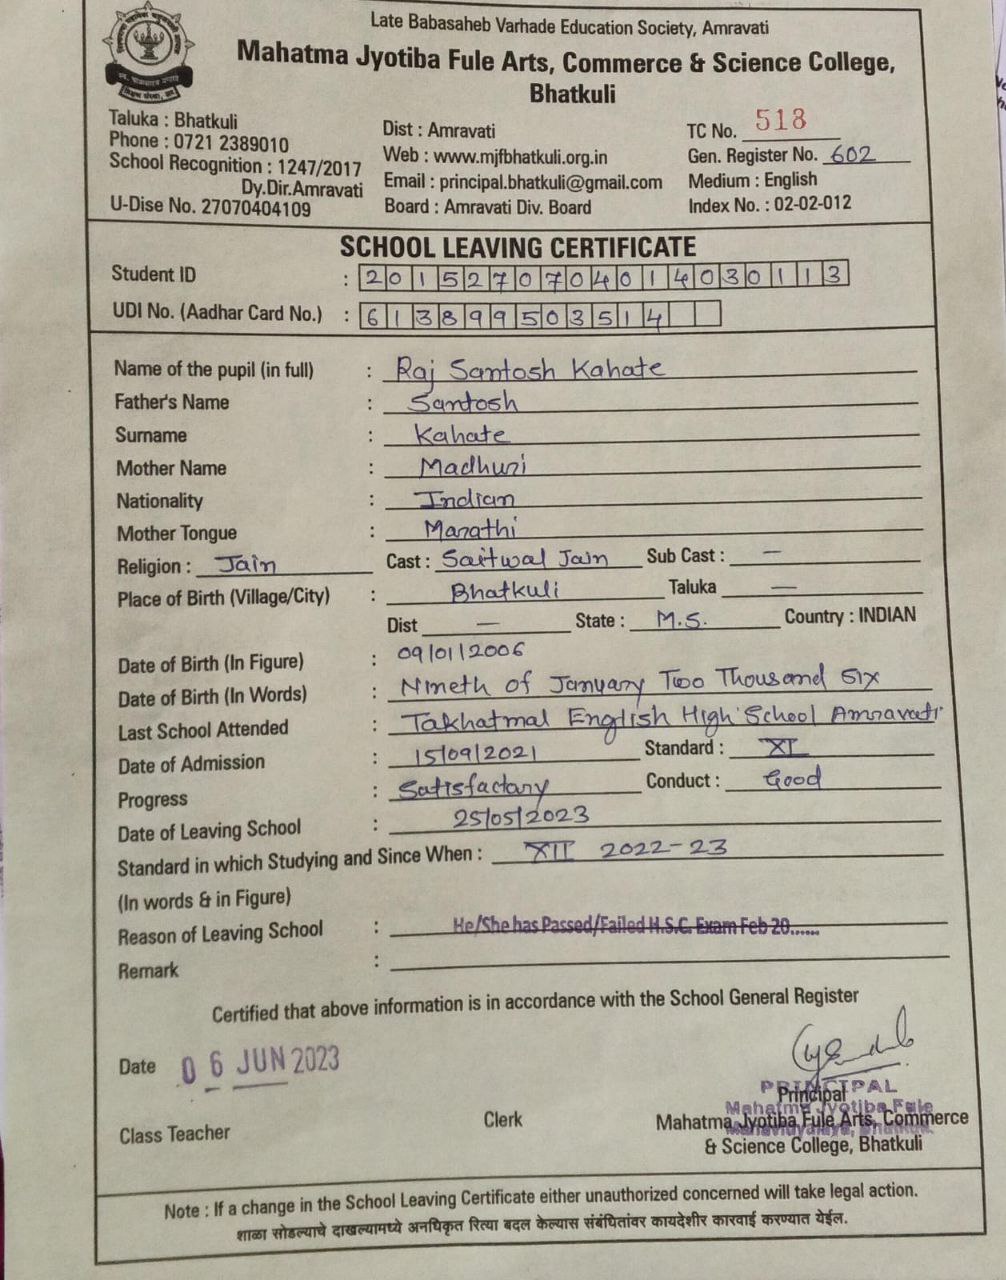 Late Babasaheb Varhade Education Society, Amravati
Mahatma Jyotiba Fule Arts, Commerce & Science College,
Bhatkuli
Taluka : Bhatkuli
Phone : 0721 2389010
School Recognition : 1247/2017
Dy.Dir.Amravati
U-Dise No. 27070404109
Dist : Amravati
Web : www.mjfbhatkuli.org.in
Email : principal.bhatkuli@gmail.com
Board : Amravati Div. Board
TC No. 518
Gen. Register No. 602
Medium : English
Index No. : 02-02-012
SCHOOL LEAVING CERTIFICATE
Student ID : 2015270704014030113
UDI No. (Aadhar Card No.) : 613899503514
Name of the pupil (in full) : Raj Santosh Kahate
Father's Name : Santosh
Surname : Kahate
Mother Name : Madhuri
Nationality : Indian
Mother Tongue : Marathi
Religion : Jain Cast : Saitwal Jain Sub Cast : —
Place of Birth (Village/City) : Bhatkuli Taluka —
Dist — State : M.S. Country : INDIAN
Date of Birth (In Figure) : 09/01/2006
Date of Birth (In Words) : Nineth of January Two Thousand Six
Last School Attended : Takhatmal English High School Amravati
Date of Admission : 15/09/2021 Standard : XI
Progress : Satisfactory Conduct : Good
Date of Leaving School : 25/05/2023
Standard in which Studying and Since When : XII 2022-23
(In words & in Figure)
Reason of Leaving School : He/She has Passed/Failed H.S.C. Exam Feb 20......
Remark :
Certified that above information is in accordance with the School General Register
Date 06 JUN 2023
PRINCIPAL
Principal
Mahatma Jyotiba Fule
Class Teacher Clerk Mahatma Jyotiba Fule Arts, Commerce
Mahavidyalaya, Bhatkuli
& Science College, Bhatkuli
Note : If a change in the School Leaving Certificate either unauthorized concerned will take legal action.
शाळा सोडल्याचे दाखल्यामध्ये अनधिकृत रित्या बदल केल्यास संबंधितांवर कायदेशीर कारवाई करण्यात येईल.